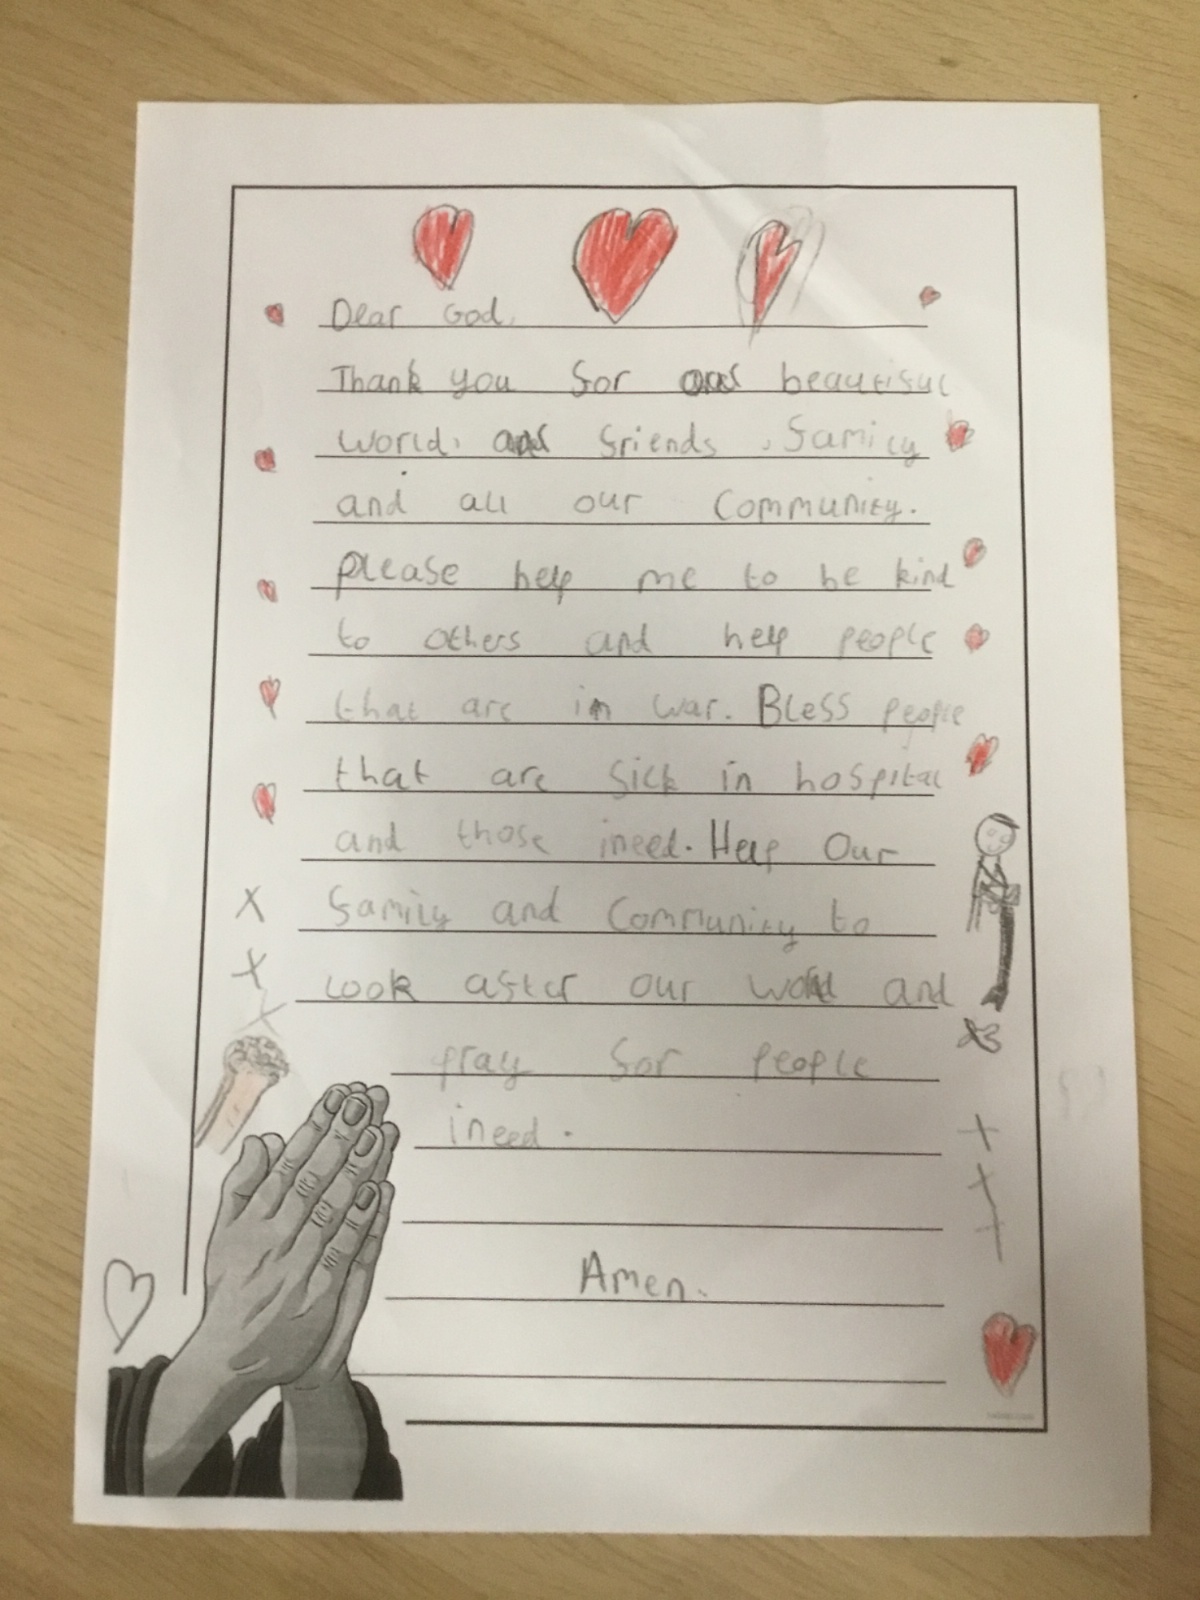 Dear God,
Thank you for our beautiful
world, friends, family
and all our Community.
please help me to be kind
to others and help people
that are in war. Bless people
that are sick in hospital
and those ineed. Help Our
family and Community to
look after our world and
pray for people
ineed.
Amen.